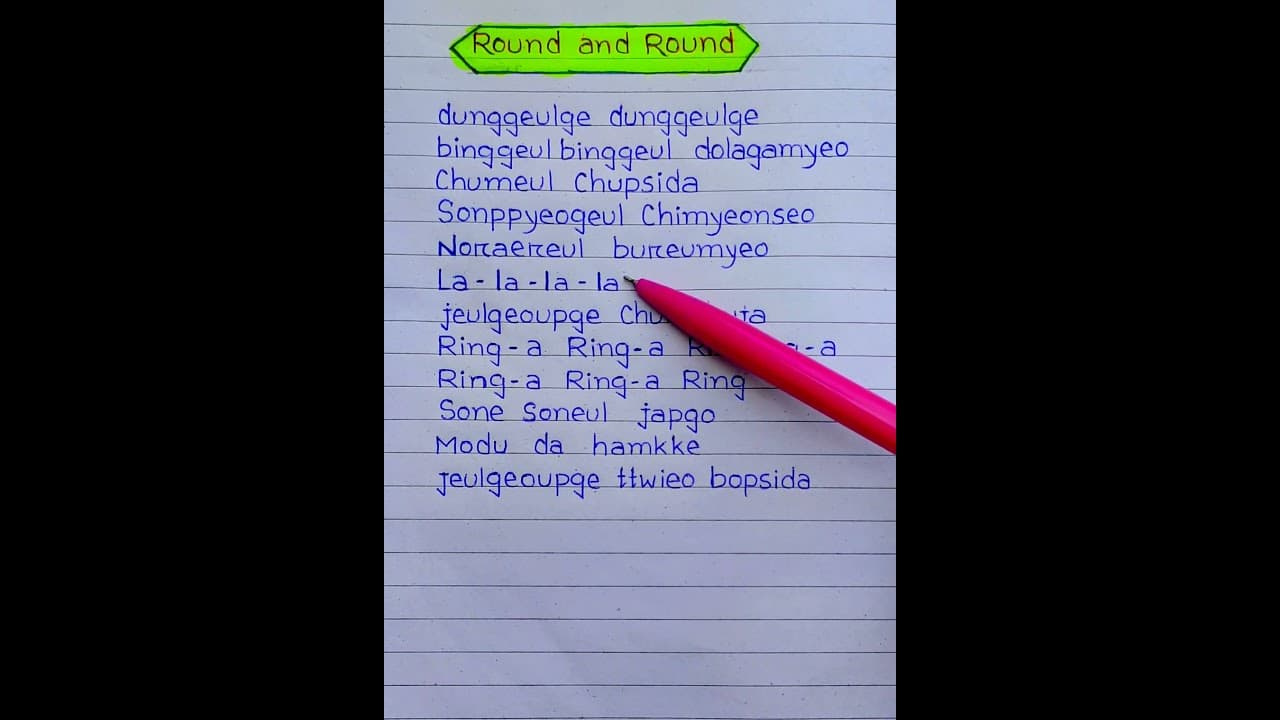 Round and Round
dunggeulge dunggeulge
binggeul binggeul dolagamyeo
Chumeul Chupsida
Sonppyeogeul Chimyeonseo
Noraereul bureumyeo
La-la-la-la
jeulgeoupge
Ring-a Ring-a
Ring-a Ring-a Ring
Sone Soneul japgo
Modu da hamkke
jeulgeoupge ttwieo bopsida